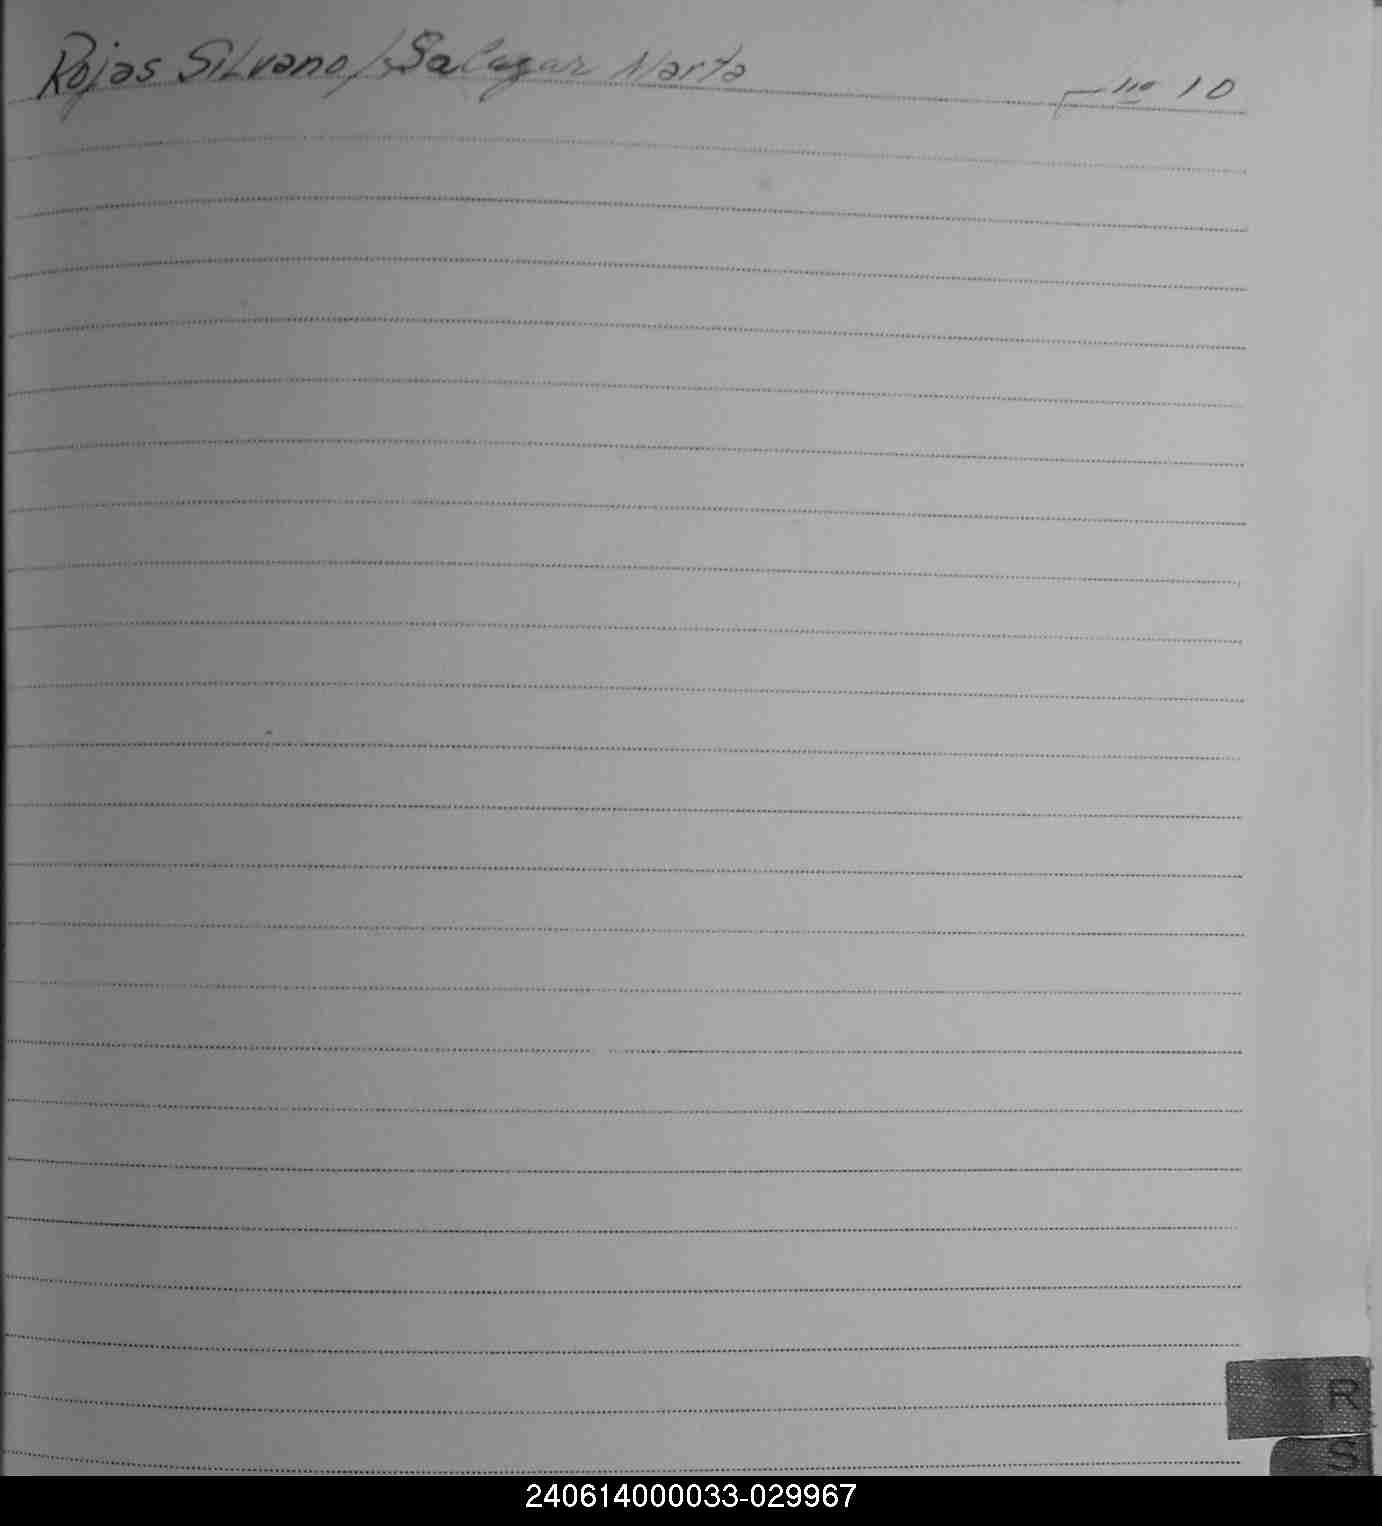 Rojas Silvano / Salazar Marta nº 10
R
S
240614000033-029967